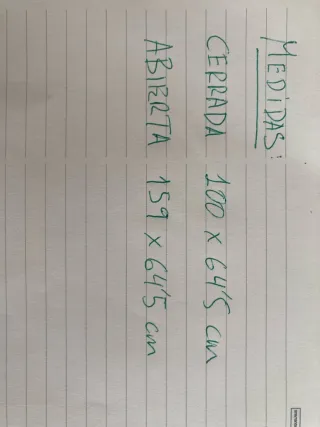 MEDIDAS:
CERRADA 100 x 64'5 cm
ABIERTA 159 x 64'5 cm